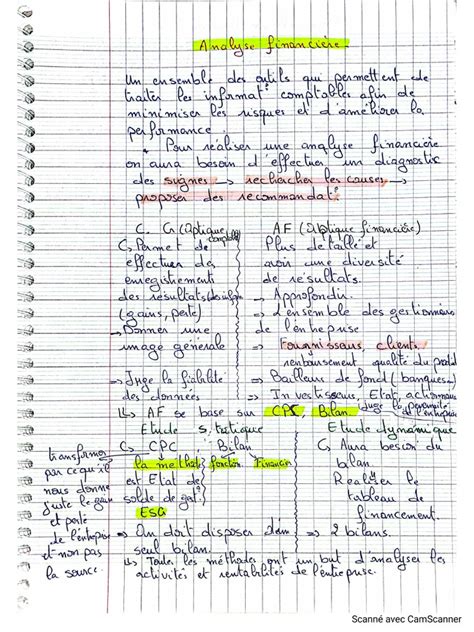 Analyse financière.
Un ensemble des outils qui permettent de
traiter les informat° comptables afin de
minimiser les risques et d'améliorer la
performance.
Pour réaliser une analyse financière
on aura besoin d'effectuer un diagnostic
des signes → rechercher les causes →
proposer des recommandat°
C. G (Optique comptable)
↳ Permet de
effectuer des
enregistrements
des résultats
(gains, perte)
→ Donner une
image générale
⇒ Juge la fiabilité
des données
AF (Optique financière)
Plus détaillé et
avoir une diversité
de résultats.
→ Approfondir.
→ L'ensemble des gestionnaires
de l'entreprise
→ Fournisseurs, clients
remboursement, qualité du produit
⇒ Bailleurs de fond (banques)
⇒ Investisseurs, Etat, actionnaires
juge la
↳ AF se base sur CPC, Bilan
Etude statique
↳ CPC, Bilan
la méthode fonction. Financier
est Etat de
solde de gest°.
ESG
⇒ On doit disposer d'un
seul bilan.
Etude dynamique
↳ Aura besoin du
bilan
Réaliser le
tableau de
financement.
⇒ 2 bilans.
transformer
par ce qu'il
nous donne
juste le gain
et perte
de l'entreprise
et non pas
la source.
↳ Toutes les méthodes ont un but d'analyser les
activités et rentabilités de l'entreprise.
Scanné avec CamScanner